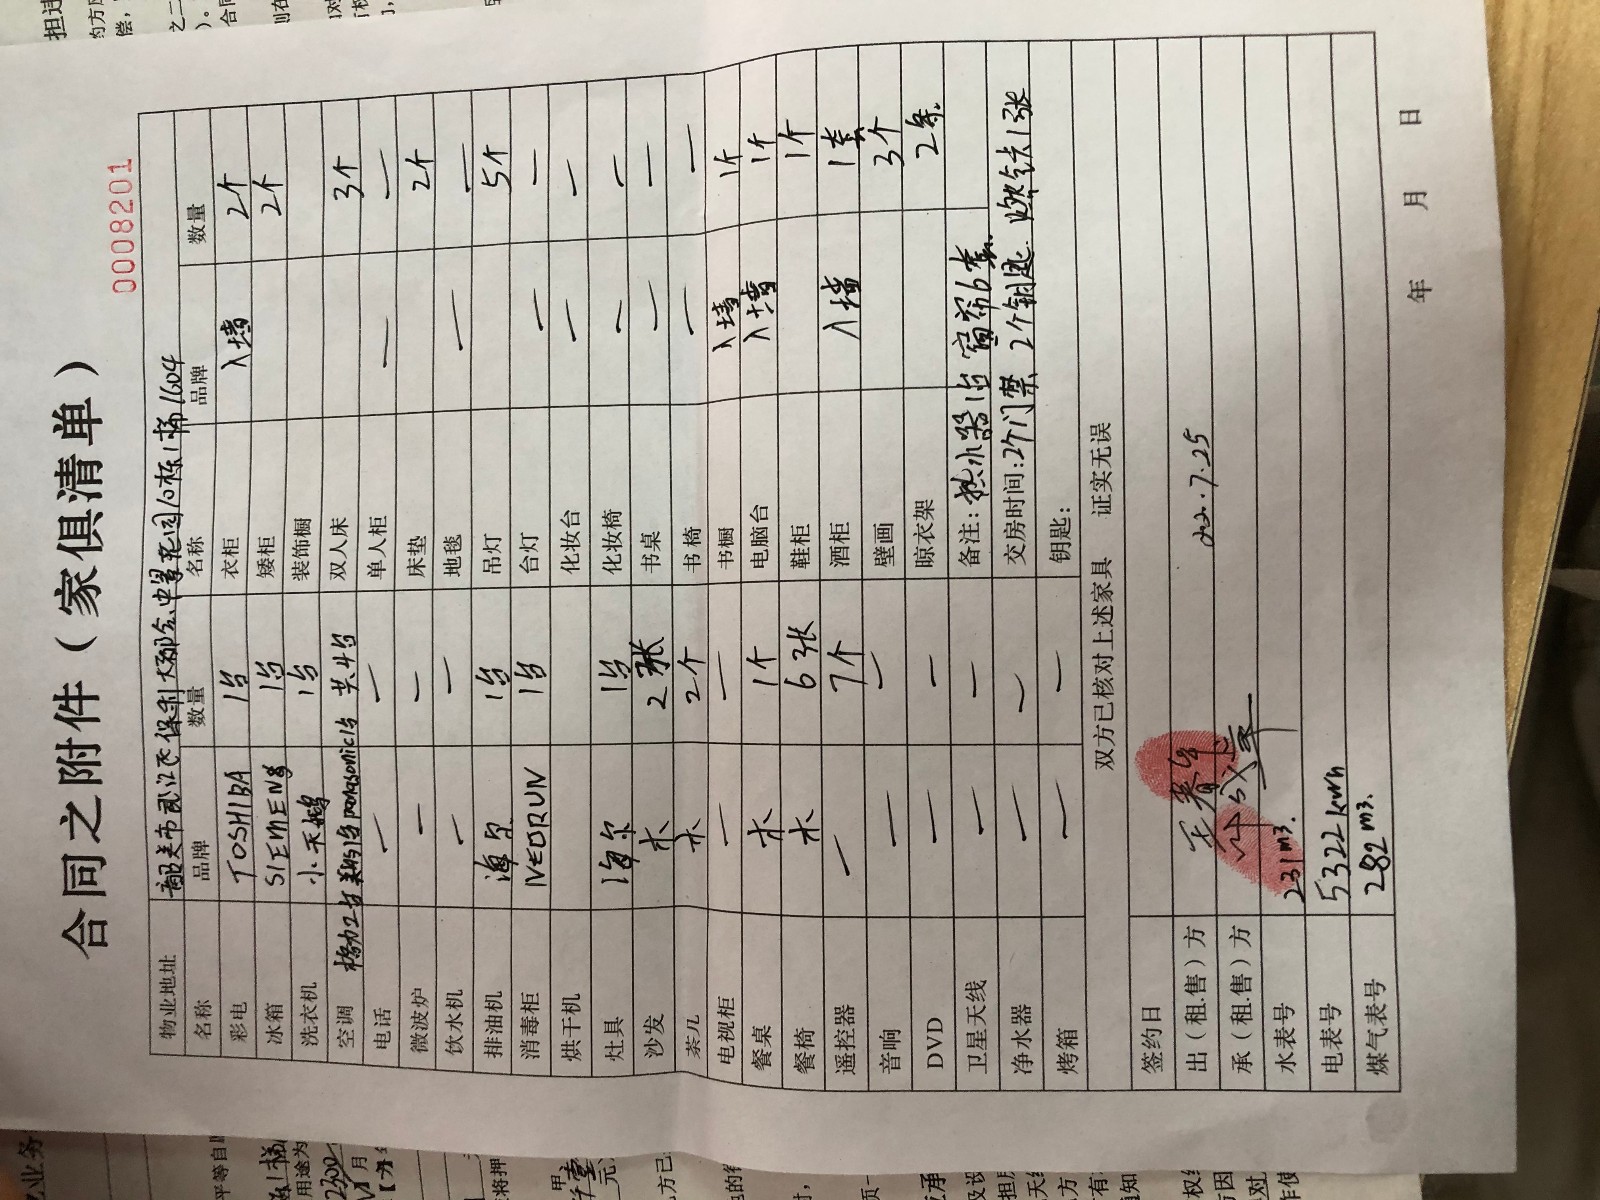 合同之附件（家俱清单）
0008201
物业地址 韶关市武江区保利大都会中誉花园10栋1梯1604
名称 品牌 数量 名称 品牌 数量
彩电 TOSHIBA 1台 衣柜 入墙 2个
冰箱 SIEMENS 1台 矮柜 2个
洗衣机 小天鹅 1台 装饰橱
空调 格力2台 美的1台 panasonic1台 共4台 双人床 3个
电话 — — 单人柜 — —
微波炉 — — 床垫 2个
饮水机 — — 地毯 — —
排油机 海尔 1台 吊灯 5个
消毒柜 VEORUN 1台 台灯 — —
烘干机 化妆台 — —
灶具 海尔 1台 化妆椅 — —
沙发 木 2张 书桌 — —
茶几 木 2个 书椅 — —
电视柜 — — 书橱 入墙 1个
餐桌 木 1个 电脑台 入墙 1个
餐椅 木 6张 鞋柜 1个
遥控器 — 7个 酒柜 入墙 1套
音响 — — 壁画 3个
DVD — — 晾衣架 2条
卫星天线 — — 备注：热水器1台 窗帘6套
净水器 — — 交房时间：2个门禁 2个钥匙 燃气卡1张
烤箱 — — 钥匙：
双方已核对上述家具 证实无误
签约日
出（租.售）方 22.7.25
承（租.售）方
水表号 231m3.
电表号 5322kwh
煤气表号 282m3.
年 月 日